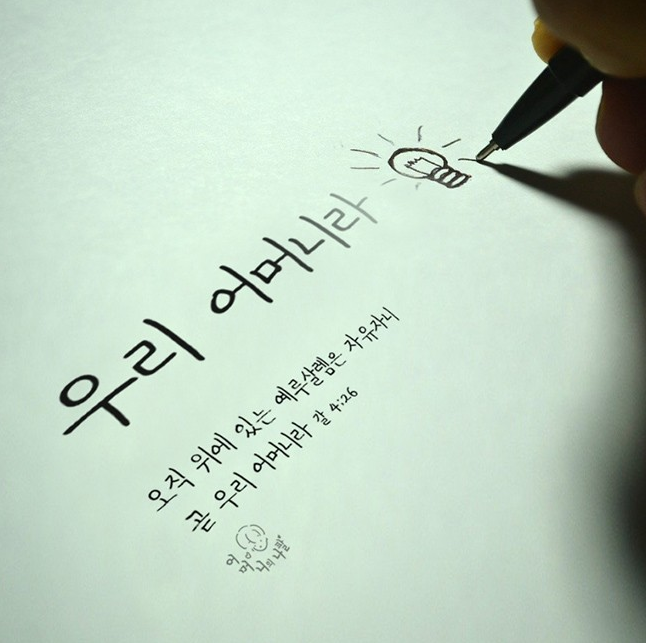 우리 어머니라
오직 위에 있는 예루살렘은 자유자니
곧 우리 어머니라 갈 4:26
어머니의 나팔